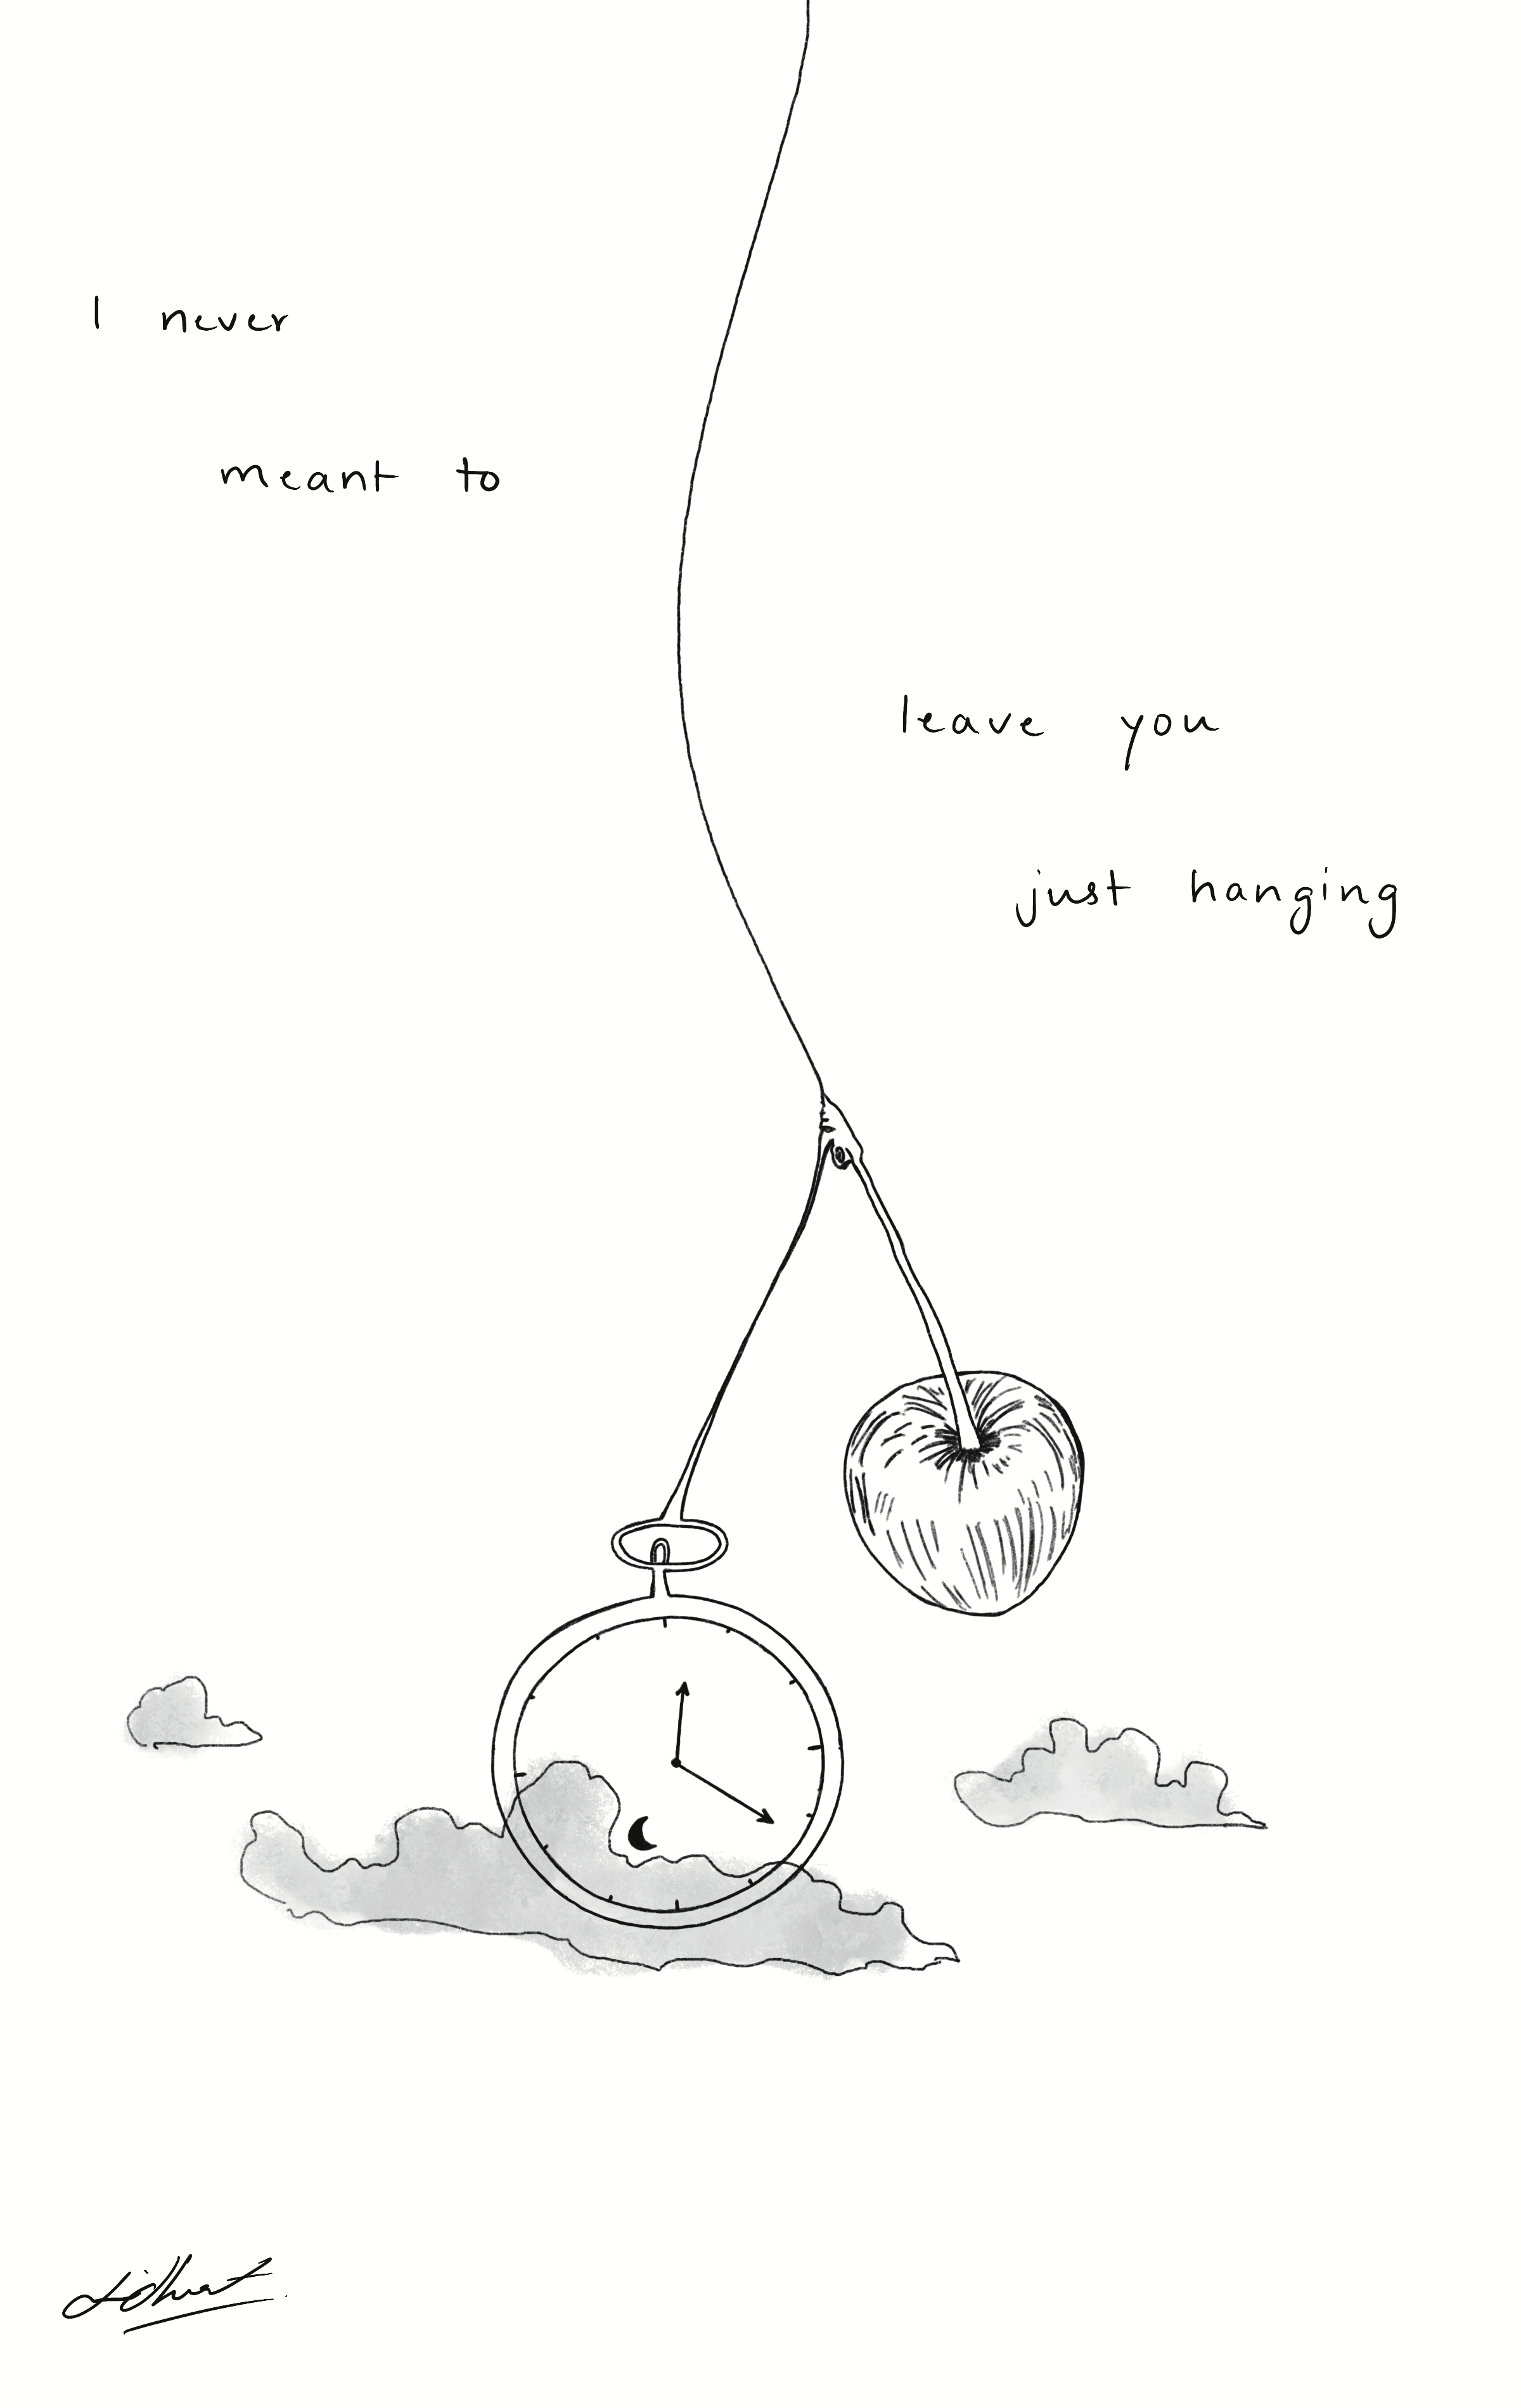 I never
meant to
leave you
just hanging